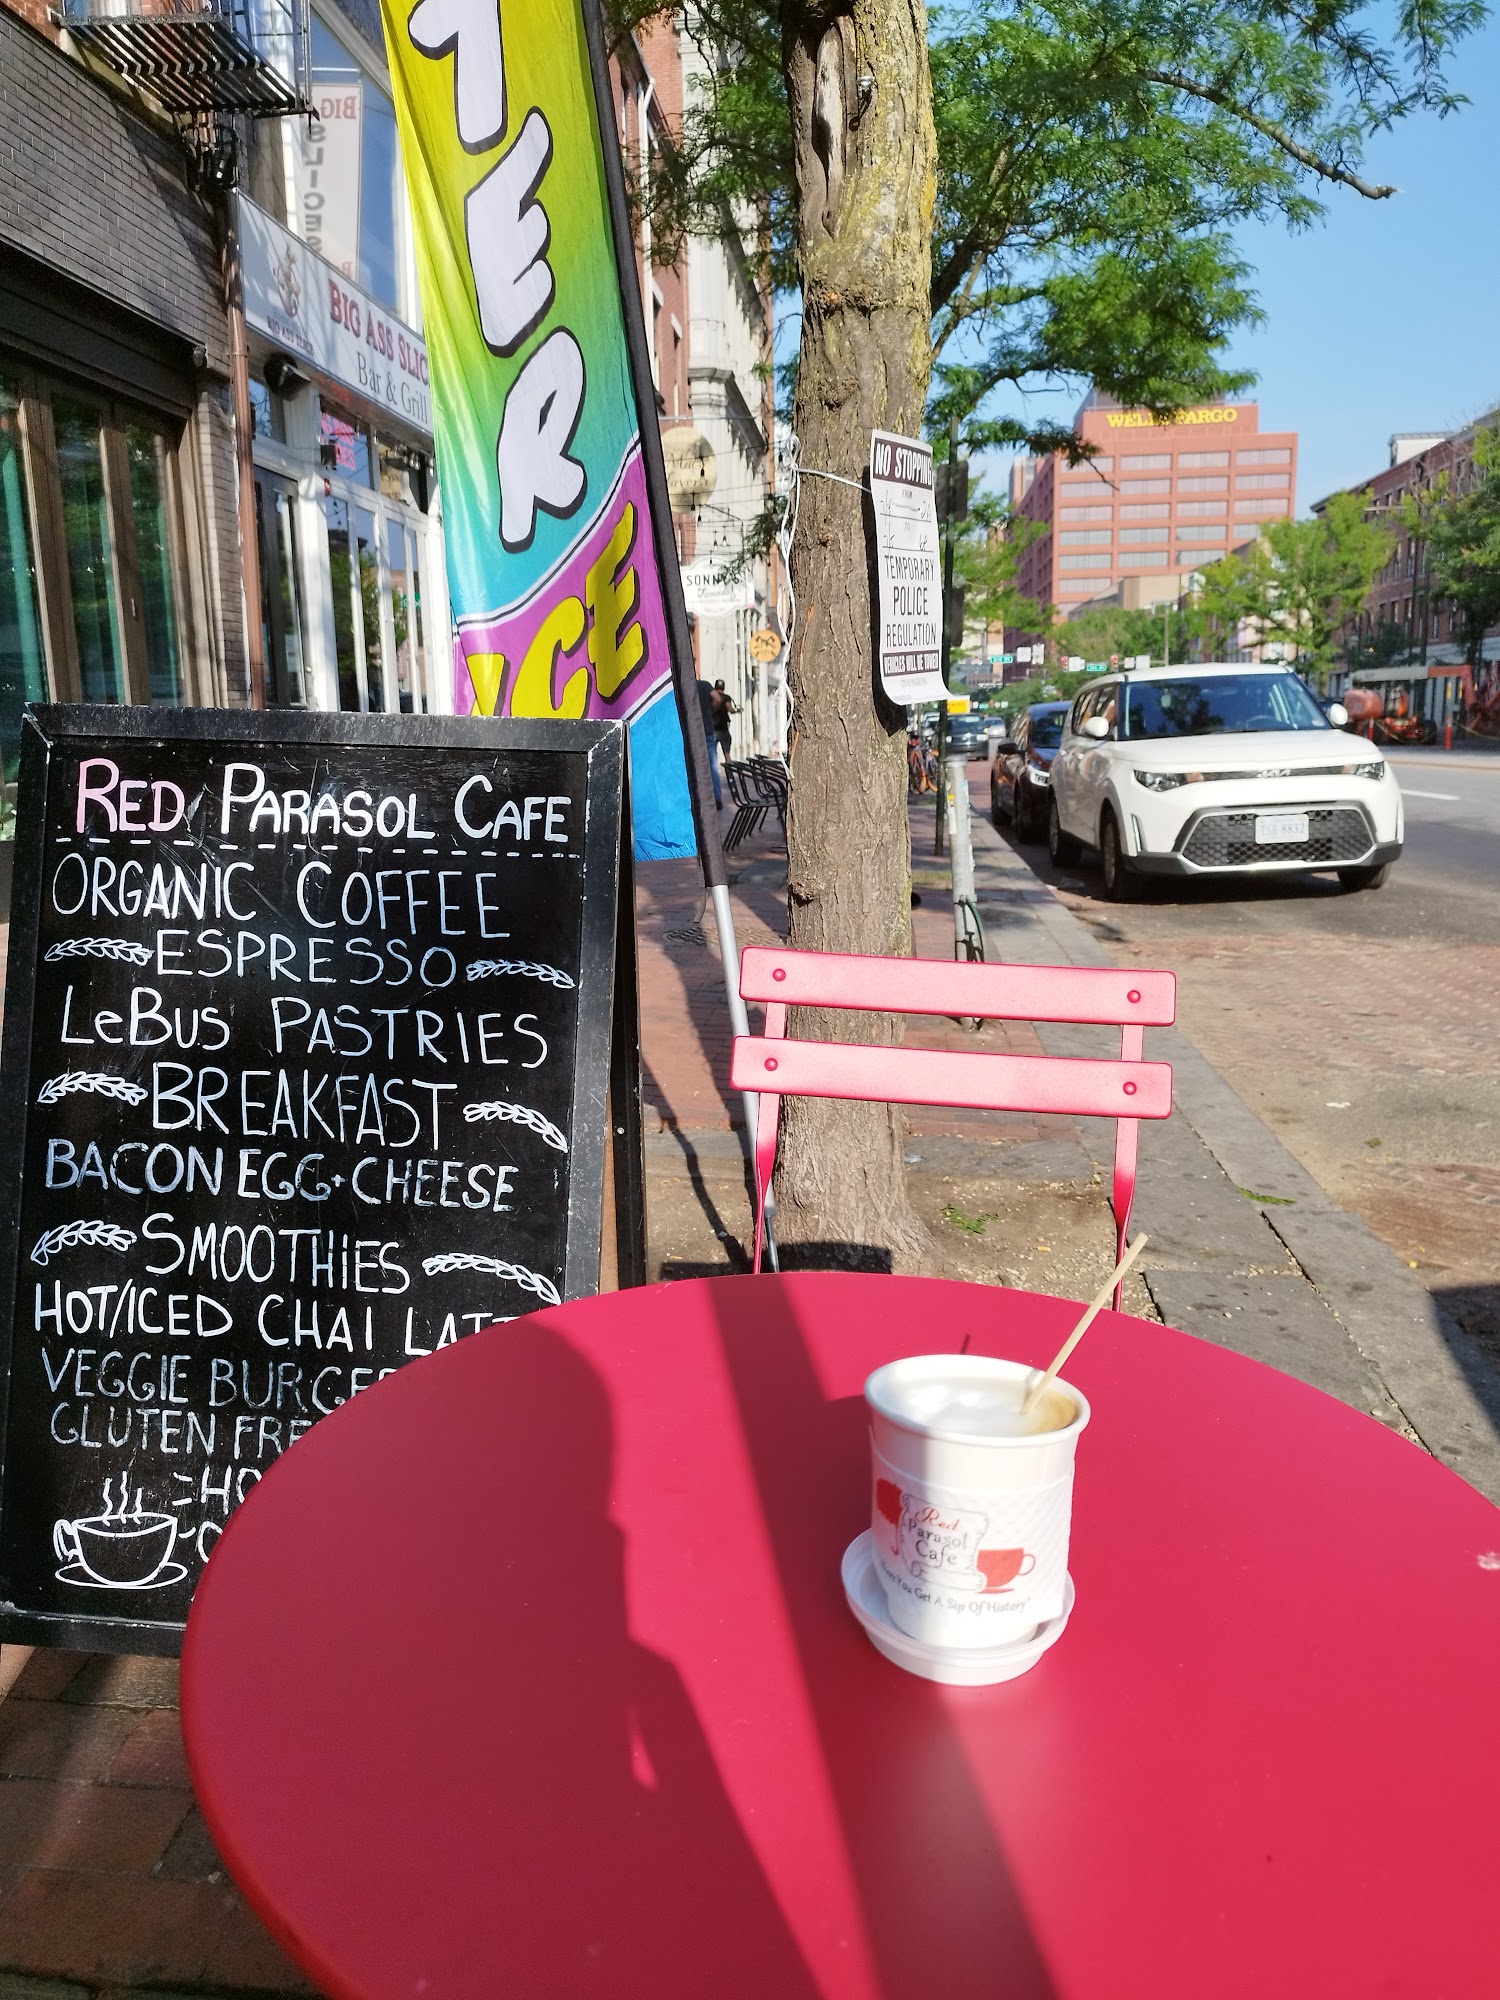 TER
ICE
BIG
SLICES
BIG ASS SLICE
BIG ASS SLIC
Bar & Grill
WELLS FARGO
NO STOPPING
FROM
TO
TEMPORARY
POLICE
REGULATION
VEHICLES WILL BE TOWED
SONNY'S
RED PARASOL CAFE
ORGANIC COFFEE
ESPRESSO
LeBUS PASTRIES
BREAKFAST
BACON EGG + CHEESE
SMOOTHiES
HOT/ICED CHAI LATT
VEGGIE BURGE
GLUTEN FRE
- HO
KIA
TSB-8832
Red
Parasol
Cafe
You Get A Sip Of History